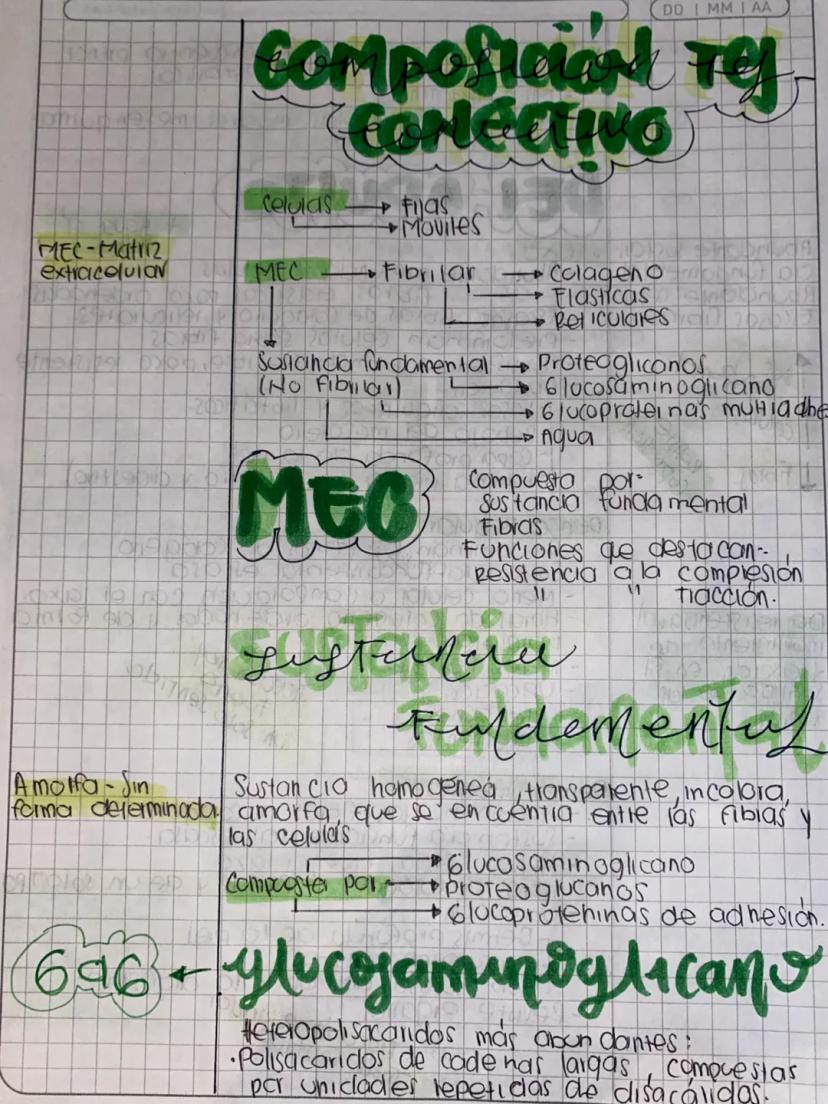 DD | MM | AA
Composición Tej
conectivo
Celulas → Fijas
→ Moviles
MEC-Matriz
extracelular
MEC → Fibrilar → Colageno
→ Elasticas
→ Reticulares
Sustancia fundamental → Proteogliconos
(No Fibrilar) → Glucosaminoglicano
→ Glucoproteinas multiadhe
→ Agua
MEC
Compuesta por:
Sustancia fundamental
Fibras
Funciones que destacan:
Resistencia a la compresión
" " tracción.
Sustancia
Fundamental
Amorfa-Sin
forma determinada
Sustancia homogénea, transparente, incolora,
amorfa, que se encuentra entre las fibras y
las celulas
→ Glucosaminoglicano
Compuesta por → Proteoglucanos
→ Glucoproteninas de adhesión.
GAG ← glucosaminoglicano
Heteropolisacaridos más abundantes:
·Polisacaridos de cadenas largas, compuestas
por unidades repetidas de disacáridos.